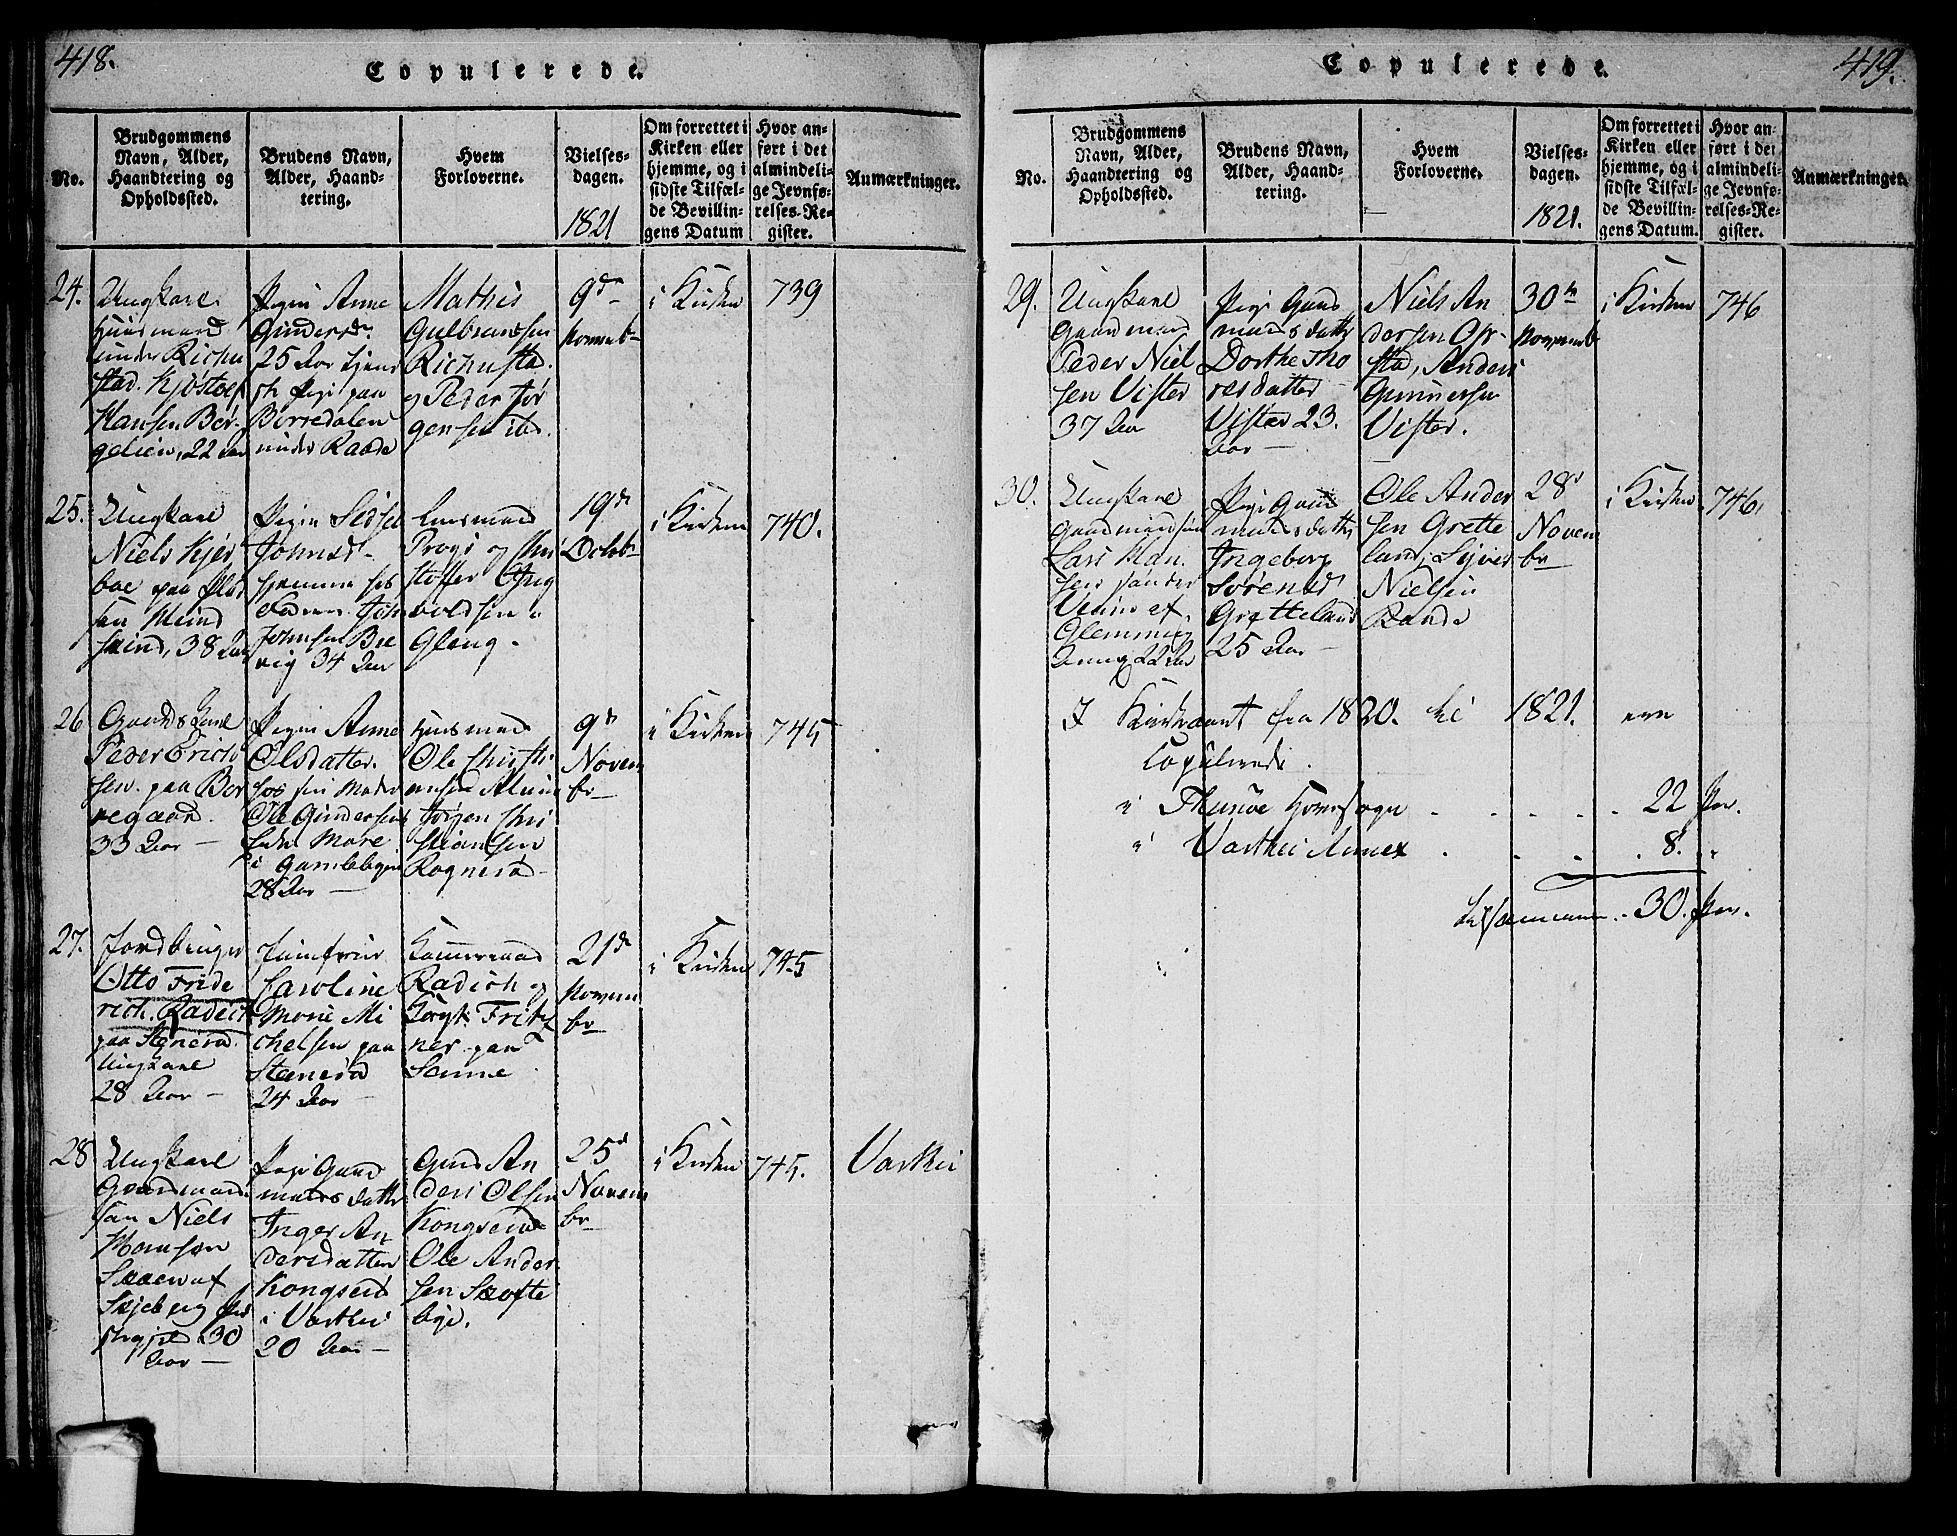 418.
Copulerede.
No.
Brudgommens
Navn, Alder,
Haandtering og
Opholdssted.
Brudens Navn,
Alder, Haand-
tering.
Hvem
Forloverne.
Vielses-
dagen.
1821
Om forrettet i
Kirken eller
hjemme, og i
sidste Tilfæl-
de Bevillin-
gens Datum
Hvor an-
ført i det
almindeli-
ge Jevnfø-
relses-Re-
gister.
Anmærkninger.
24.
Ungkarl
Huusmand
under Richu
stad. Kjøstolf
Hansen Bør-
gelien, 22 Aar
Pigen Anne
Gundersdr
25 Aar tjene
paa
Borredalen
under Raade
Mathis
Gulbrandsen
Richustad.
og Peder Jør
gensen ibd.
9de
Novemb
i Kirken
739
25.
Ungkarl
Niels Kjer
boe paa Plad
sen
38 Aar
Pigen Sidsel
Johnsd.
hjemme hos
Faderen John
Johnsen Bre
vig 34 Aar
og Chri
stoffer Yng
voldsen
Gleng.
19de
Octobr
i Kirken
740.
26
Gaards Karl
Peder Erich
sen paa Bor
regaard
33 Aar
Pigen Anne
Olsdatter.
hos sin Moder
Ole Gundersens
Enke More
i Gamlebyen
28 Aar
Huusmand
Ole Christi
ansen Alum
Jørgen Chri
stiansen
Rognerød
9de
Novem
br
i Kirken
745
27.
Jordbruger
Otto Fride
rich Radich
paa Stenerød
Ungkarl
28 Aar
Jomfrue
Caroline
Marie Mi
chelsen paa
Stenerød
24 Aar
Kammerraad
Radich og
Fritz
ner paa
Sanne
21de
Novem
br
i Kirken
745
28
Ungkarl
Gaardmand
søn Niels
Monsson
Skaaen af
Skjeberg Præ
stegjeld 30
Aar
Pige Gaard
mandsdatter
Inger An
dersdatter
Kongserød
i Varthei
20 Aar
Gmd An
ders Olsen
Kongserød
Ole Ander
sen Skofte
bye.
25d
Novem
br
i Kirken
745.
Varthei
419.
Copulerede.
No.
Brudgommens
Navn, Alder,
Haandtering og
Opholdssted.
Brudens Navn,
Alder, Haand-
tering.
Hvem
Forloverne.
Vielses-
dagen.
1821.
Om forrettet i
Kirken eller
hjemme, og i
sidste Tilfæl-
de Bevillin-
gens Datum.
Hvor an-
ført i det
almindeli-
ge Jevnfø-
relses-Re-
gister.
Anmærkninger.
29.
Ungkarl
Gaardmand
Peder Niel
sen Vister
37 Aar
Pige Gaard
mandsdattr
Dorthe Tho
resdatter
Vister 23.
Aar
Niels An
dersen Op-
stad, Anders
Gunnersen
Vister.
30te
Novemb
i Kirken
746
30.
Ungkarl
Gaardmandsøn
Lars Han
sen
af
Glemminge
22 Aar
Pige Gaard
mandsdattr
Ingeborg
Sørensd
Grætteland
25 Aar
Ole Ander
sen Grette
land, Syver
Nielsen
Raade
28d
Novem
br
i Kirken
746,
I Kirkeaaret fra 1820. til 1821. ere
Copulerede.
i Thunøe Hovedsogn . . . . . 22 Par.
i Varthei Annex . . . . 8. "
tilsammen . . 30. Par.